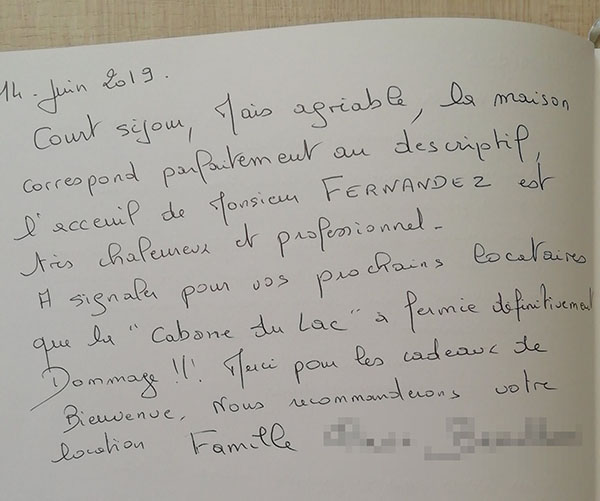 14. Juin 2019.
Court séjour, Mais agréable, la maison
correspond parfaitement au descriptif,
l'acceuil de Monsieur FERNANDEZ est
très chaleureux et professionnel.
A signaler pour vos prochains locataires
que la "Cabane du Lac" a fermée définitivement
Dommage !!! Merci pour les cadeaux de
Bienvenue, Nous recommanderons votre
location Famille